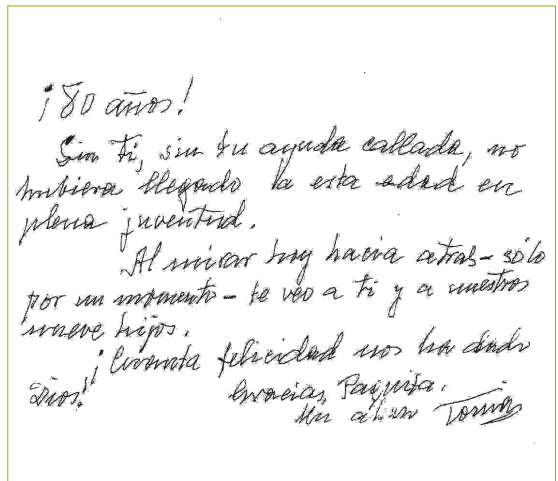 ¡80 años!
Sin ti, sin tu ayuda callada, no
hubiera llegado a esta edad en
plena juventud.
Al mirar hoy hacia atras - sólo
por un momento - te veo a ti y a nuestros
nueve hijos.
¡Cuanta felicidad nos ha dado
Dios! Gracias, Paquita.
Un abrazo Tomás